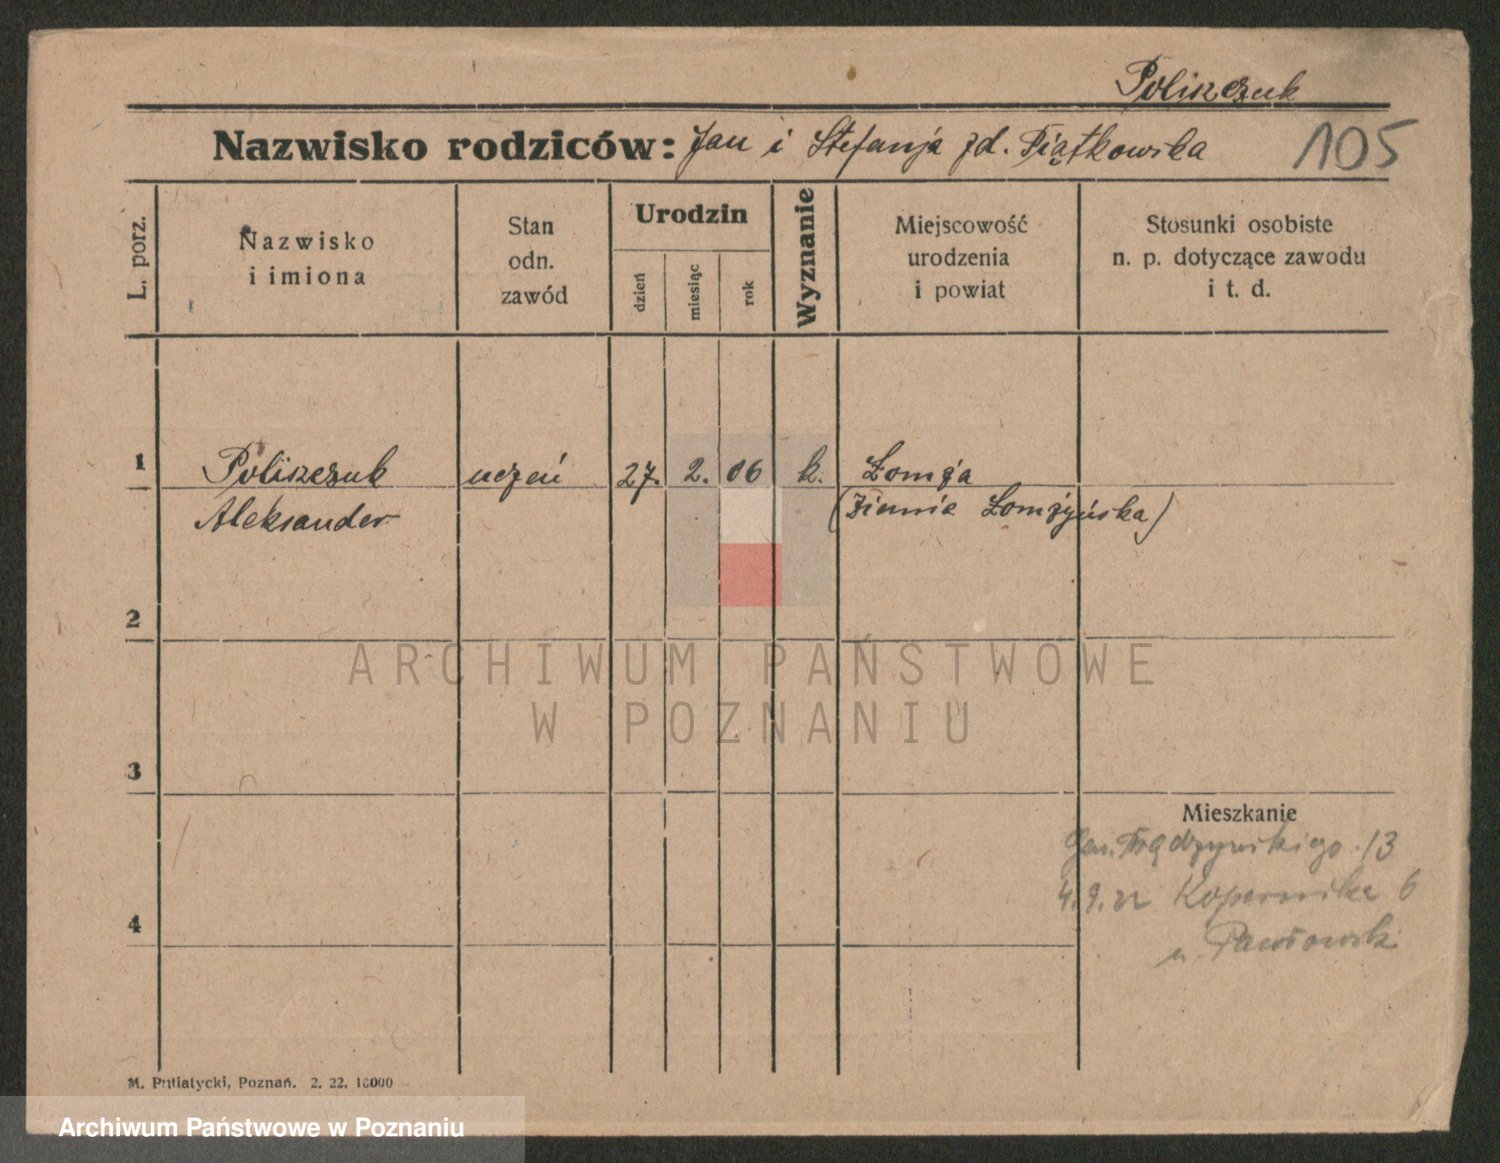 Poliszczuk
Nazwisko rodziców: Jan i Stefanja zd. Piątkowska 105
L. porz.
Nazwisko
i imiona
Stan
odn.
zawód
Urodzin
dzień
miesiąc
rok
Wyznanie
Miejscowość
urodzenia
i powiat
Stosunki osobiste
n. p. dotyczące zawodu
i t. d.
1 Poliszczuk uczeń 27. 2. 06 k. Łomża
Aleksander (Ziemia Łomżyńska)
2
ARCHIWUM PAŃSTWOWE
W POZNANIU
3
Mieszkanie
Gen. Prądzyńskiego 13
4.9.22 Kopernika 6
4
u. Pawłowski
M. Putiatycki, Poznań. 2. 22. 10000
Archiwum Państwowe w Poznaniu